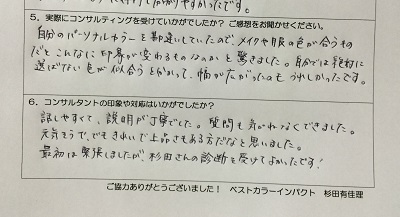 5．実際にコンサルティングを受けていかがでしたか？ ご感想をお聞かせください。
自分のパーソナルカラーを勘違いしていたので、メイクや服の色が合うもの
だとこんなに印象が変わるものなのかと驚きました。自分では絶対に
選ばない色が似合うとわかって、幅が広がったのもうれしかったです。
6．コンサルタントの印象や対応はいかがでしたか？
話しやすくて、説明が丁寧でした。質問も気がねなくできました。
元気そうで、でもきれいで上品さもある方だなと思いました。
最初は緊張しましたが、杉田さんの診断を受けてよかったです！
ご協力ありがとうございました！ ベストカラーインパクト 杉田有佳理